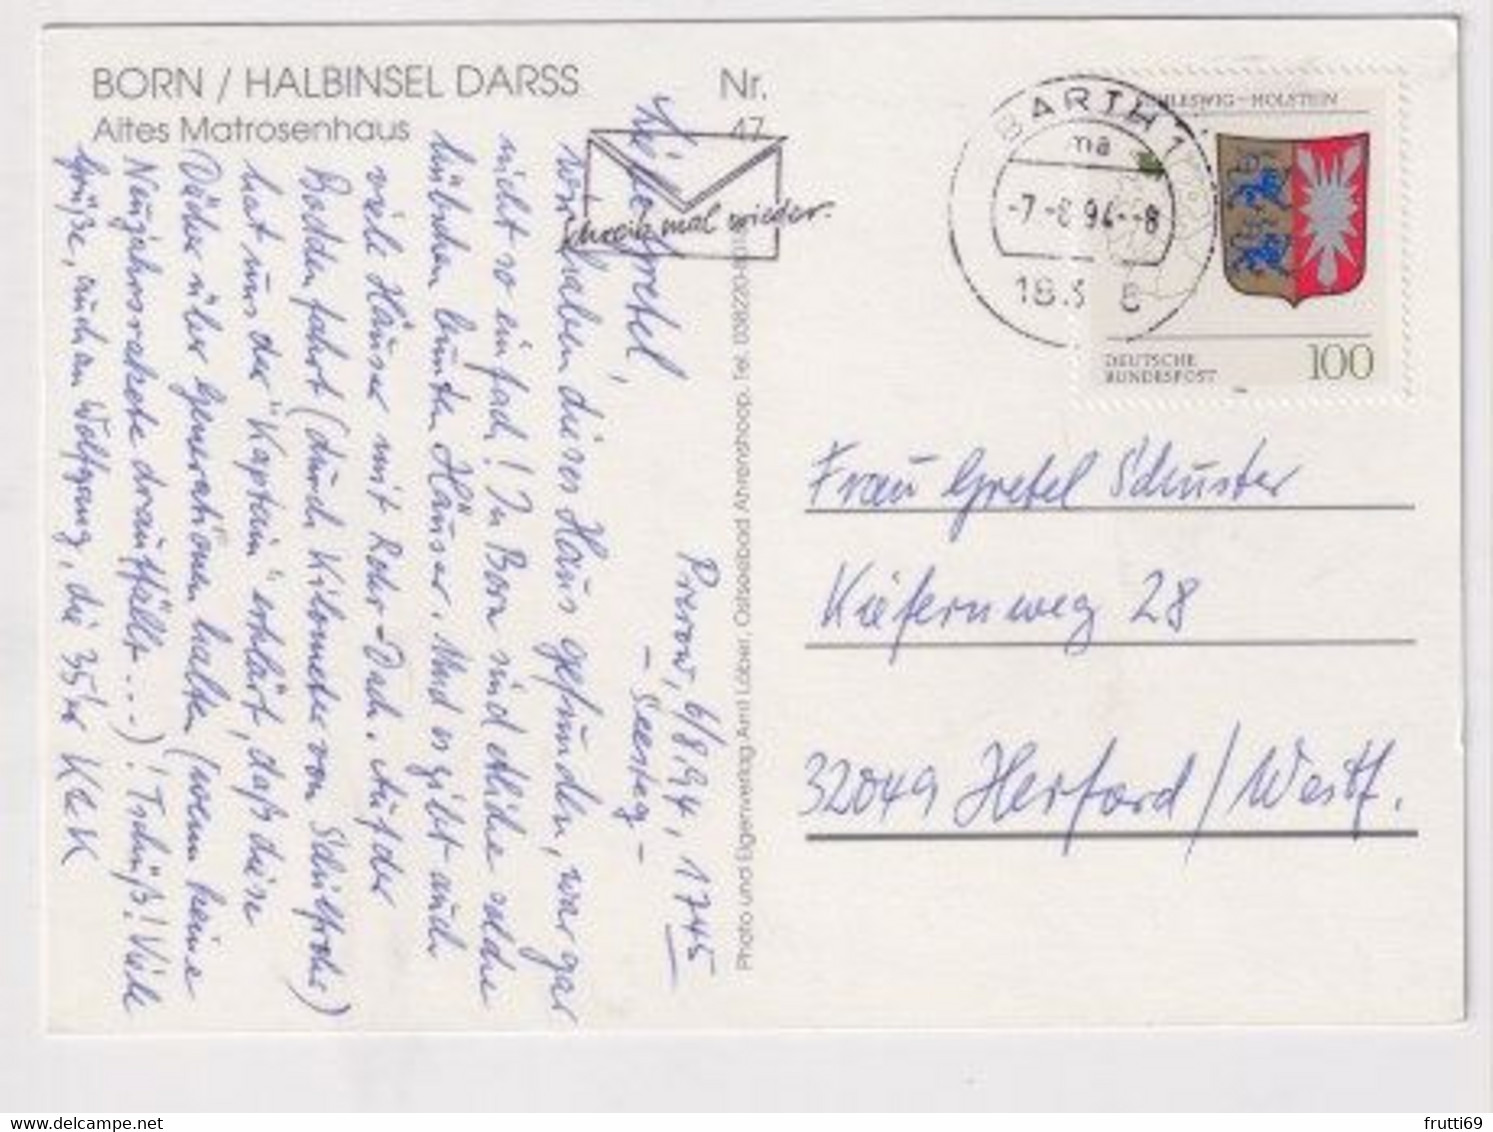 BORN / HALBINSEL DARSS
Altes Matrosenhaus
Nr.
47
Prerow, 6/8.94, 1745
- Seestag -
Liebe Gretel,
wir haben dieses Haus gefunden, war gar
nicht so einfach! In Born sind etliche solche
hübschen bunten Häuser. Und es gibt auch
viele Häuser mit Rohr-Dach. Auf der
Boddenfahrt (durch Kilometer von Schilfrohr)
hat uns der "Kaptein" erklärt, daß diese
Dächer über Generationen halten (wenn keine
Neujahrsrakete drauffällt...)! Tschüß! Viele
Grüße, auch an Wolfgang, die 35'er K&K
Photo und Eigenverlag Arni Löber, Ostseebad Ahrenshoop, Tel. 038220
Schreib mal wieder.
BARTH 1
ma
-7.-8.94.--8
183 6
SCHLESWIG-HOLSTEIN
DEUTSCHE
BUNDESPOST
100
Frau Gretel Schuster
Kiefernweg 28
32049 Herford / Westf.
delcampe.net
frutti69